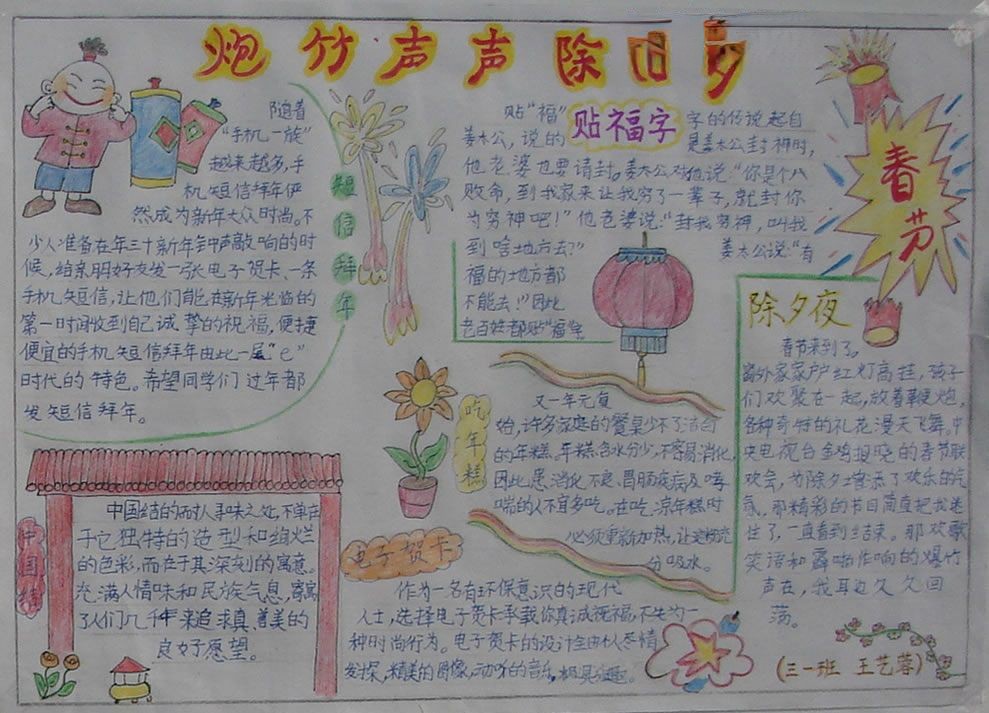 炮竹声声除旧岁
短信拜年
随着
“手机一族”
越来越多,手
机短信拜年俨
然成为新年大众时尚。不
少人准备在年三十新年钟声敲响的时
候,给亲朋好友发一张电子贺卡、一条
手机短信,让他们能在新年光临的
第一时间收到自己诚挚的祝福,便捷
便宜的手机短信拜年由此一展“e”
时代的特色。希望同学们过年都
发短信拜年。
贴福字
贴“福”字的传说起自
姜太公,说的是姜太公封神时,
他老婆也要请封。姜太公对她说:“你是个八
败命,到我家来让我穷了一辈子,就封你
为穷神吧!”他老婆说:“封我穷神,叫我
到啥地方去?”姜太公说:“有
福的地方都
不能去!”因此
老百姓都贴“福”字。
春节
除夕夜
春节来到了。
窗外家家户户红灯高挂,孩子
们欢聚在一起,放着鞭炮,
各种奇特的礼花漫天飞舞。中
央电视台金鸡报晓的春节联
欢会,为除夕宫添了欢乐的气
氛。那精彩的节目简直把我迷
住了,一直看到结束。那欢歌
笑语和霹啪作响的爆竹
声在,我耳边久久回
荡。
吃年糕
又一年元复
始,许多家庭的餐桌少不了洁白
的年糕。年糕含水分少,不容易消化,
因此患消化不良、胃肠疾病及哮
喘的人不宜多吃。在吃凉年糕时
必须重新加热,让之
分吸水。
中国结
中国结的耐人寻味之处,不单在
于它独特的造型和绚烂
的色彩,而在于其深刻的寓意。
充满人情味和民族气息,寄寓
了人们几千年来追求真、善美的
良好愿望。
电子贺卡
作为一名有环保意识的现代
人士,选择电子贺卡承载你真诚祝福,不失为一
种时尚行为。电子贺卡的设计全由人尽情
发挥,精美的图像,动听的音乐,极具乐趣。
(三一班 王艺蓉)